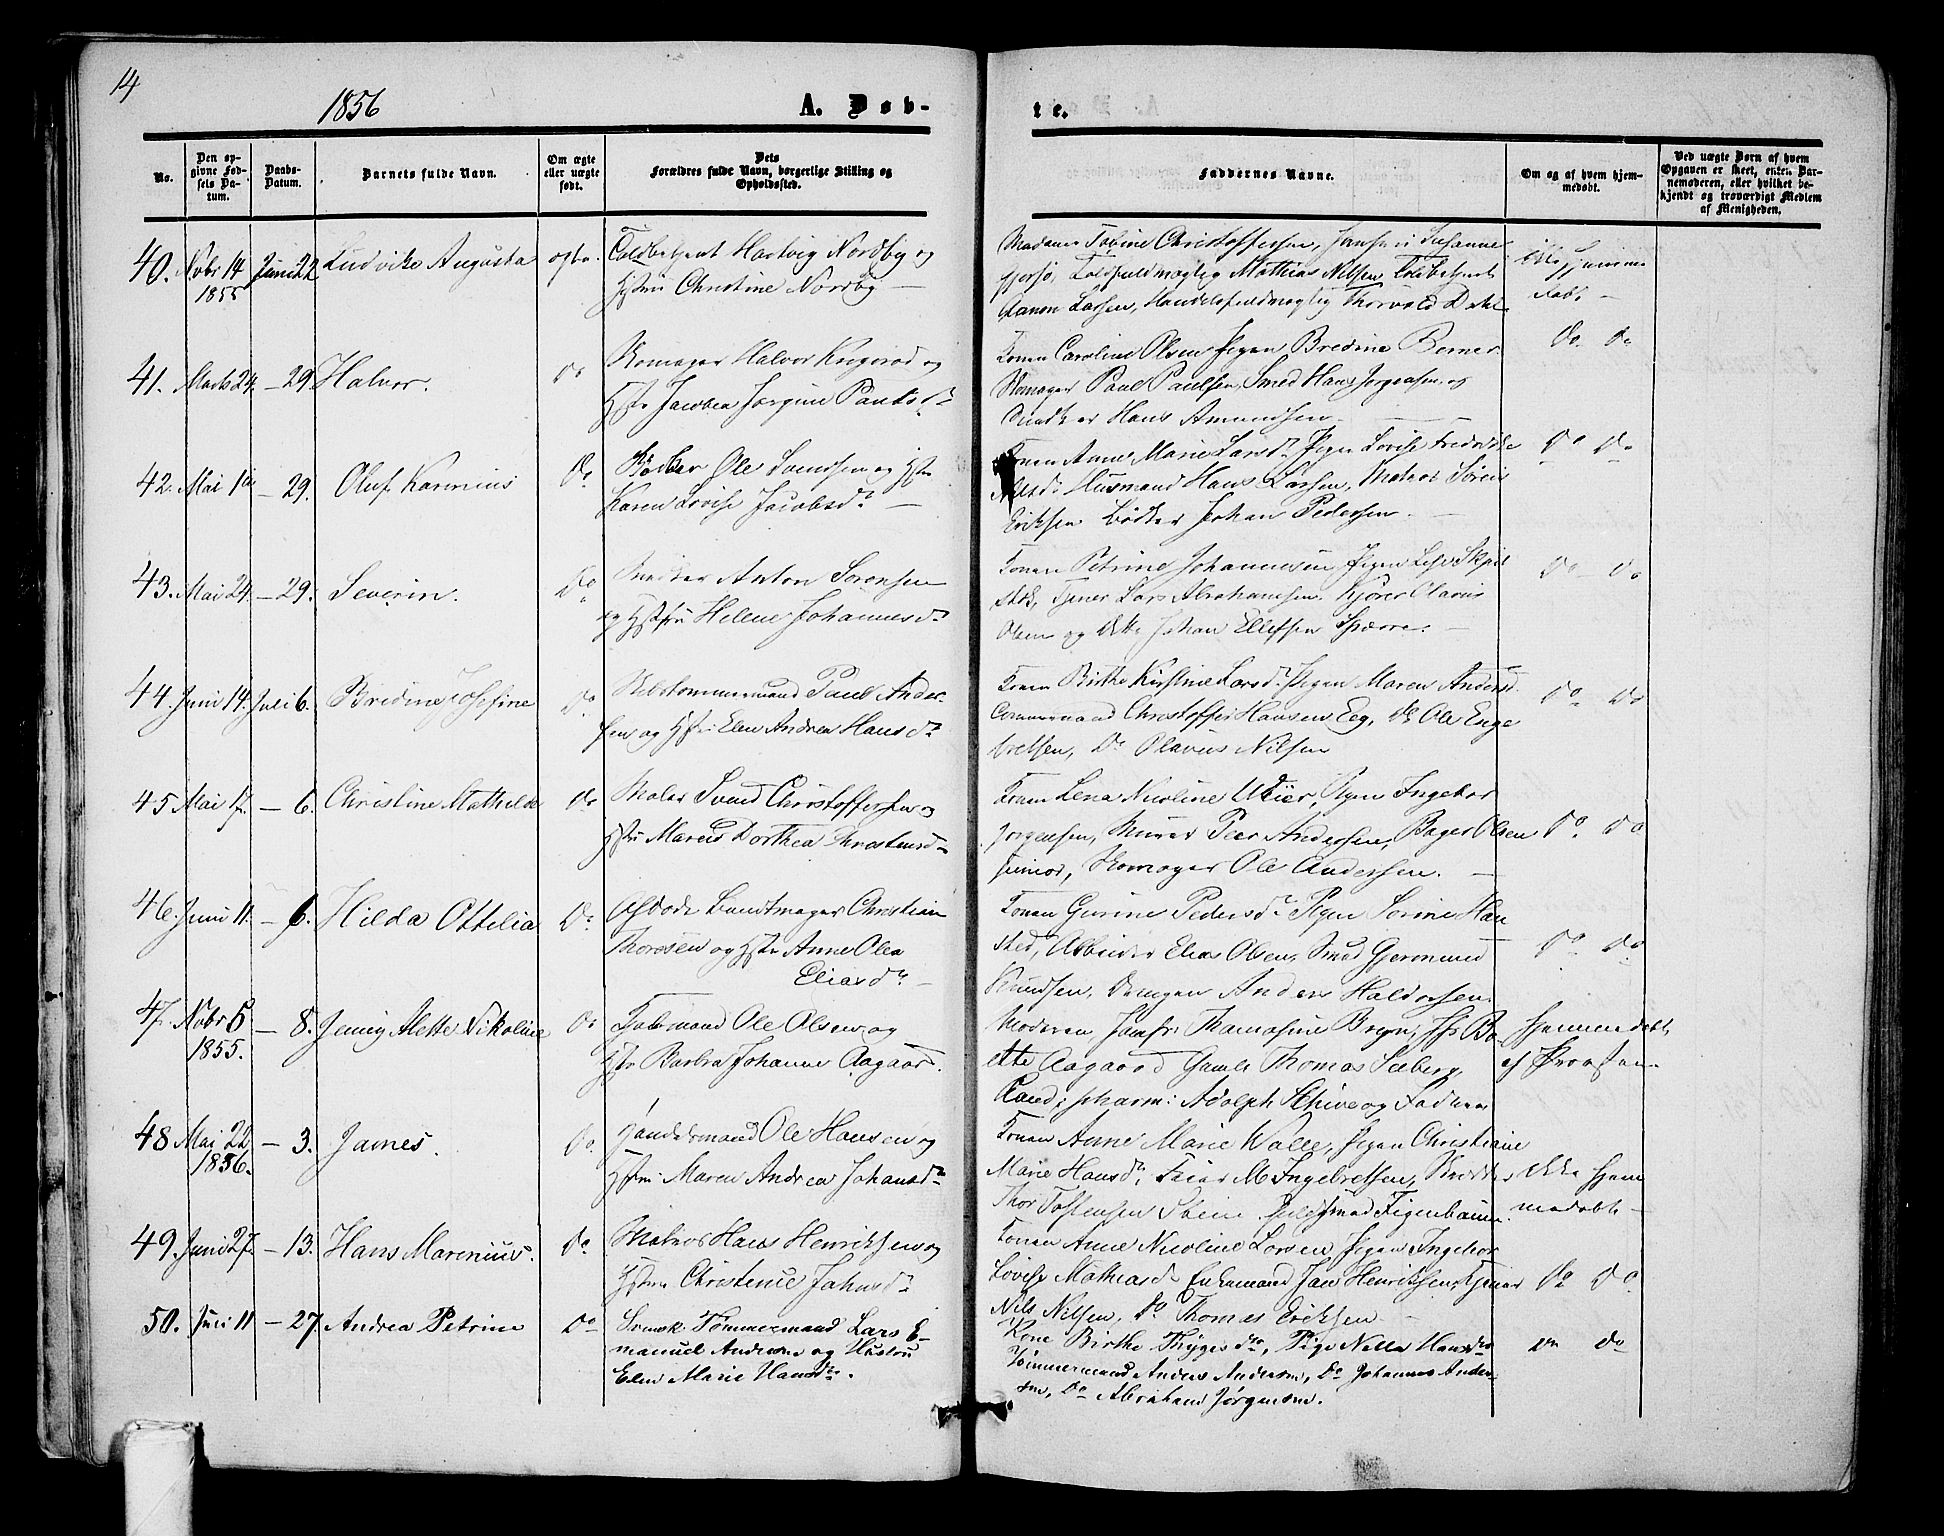 14
1856
A. Døb-
te.
No.
Den op-
givne Fød-
sels Da-
tum.
Daabs-
Datum.
Barnets fulde Navn.
Om ægte
eller uægte
født.
Dets
Forældres fulde Navn, borgerlige Stilling og
Opholdssted.
Faddernes Navne.
Om og af hvem hjem-
medøbt.
Ved uægte Børn af hvem
Opgaven er skeet, enten Bar-
nemoderen, eller hvilket be-
kjendt og troværdigt Medlem
af Menigheden.
40. Nobr 14 Juni 22 Ludvike Augusta ægte. Toldbetjent Hartvig Nordby og
1855
Hstru Christine Nordby —
Madame Tobine Christoffersen, Jomfru Susanne
Toldfuldmægtig Mathias Nilsen, Toldbetjent
Larsen, Handelsfuldmægtig Thorvald
41. Marts 24. — 29. Halvor. do Skomager Halvor og
Hstr Jacobea Jørgine Paulsd.
Konen Caroline Olsen Pigen Bredine Berner
Skomager Paul Paulsen, Smed Hans Jørgensen og
Snedker Hans Amundsen. —
Do Do
42. Mai 10 — 29. Oluf Karenius Do Bødker Ole Svendsen og Hstr
Karen Lovise Jacobsd. —
Konen Anne Marie Larsd. Pigen Lovise Fredrikke
Nilsd. Husmand Hans Larsen, Matros Søren
Eriksen Bødker Johan Pedersen. —
Do Do
43. Mai 24. — 29. Severin. Do Snedker Anton Sørensen
og Hstru Helene Johannesd.
Konen Petrine Johannesen Pigen
Tjener Lars Abrahamsen. Kjører Olavus
Olsen og Ditto Johan Ellefsen Sparre. —
Do Do
44. Juni 14. Juli 6. Bredine Josefine Do Skibstømmermand Paul Ander-
sen og Hstr: Elen Andrea Hansd.
Konen Birthe Kirstine Larsd. Pigen Maren Andersd.
Tømmermand Christoffer Hansen Eeg, Do Ole Enge
bretsen, Do Olavus Nilsen
Do Do
45 Mai 17. — 6. Christine Mathilde do Maler Svend Christoffersen og
Hstr Maren Dorthea Thorstensd. —
Konen Lena Nicoline Meier, Pigen Ingebor
Jørgensen, Murer Peer Andersen, Bager Olsen
junior, Skomager Ole Andersen. —
Do Do
46. Juni 11. — 6. Hilda Ottilia Do Afdøde Buntmager Christian
Thoresen og Hstr Anne Olea
Eliasd. —
Konen Gurine Pedersd. Pigen Sorine Han
sted, Arbeider Elias Olsen, Smed Germund
Knudsen, Anders Haldorsen.
Do Do
47. Nobr 5 — 8. Jenny Alette Nikoline Do Ole Olsen og
1855.
Hstr Barbra Johanne Aagaard.
Moderen, Jomfr: Thomasine Boyen, Jfr Bo-
lette Aagaard Gamle Thomas Seeberg,
Cand: pharm: Adolph Schive og Faderen
Hjemmedøbt
af Provsten
48 Mai 22 — 3. James. Do. Handelsmand Ole Hansen og
1856.
Hstru Maren Andrea Johansd.
Konen Anne Marie Wolle, Pigen Christiane
Marie Hansd. M. Ingebretsen, Skrædder
Thor Tostensen Steen Guldsmed Figenbaum.
Ikke hjem
medøbt —
49. Juni 27. — 13. Hans Marenius. do Matros Hans Henriksen og
Hstru Christence Johnsd.
Konen Anne Nicoline Larsen Pigen Ingebor
Lovise Mathiasd. Enkemand Jan Henriksen, Tjener
Nils Nilsen, Do Thomas Eriksen —
Do Do
50. Juli 11 — 27. Andrea Petrine Do Svensk Tømmermand Lars E-
manuel Andersen og Hustru
Elen Marie Hansdtr.
Kone Birthe Thygesdtr, Pige Nella Hansdtr
Tømmermand Anders Andersen, Do Johannes Ander-
sen, Do Abraham Jørgensen.
Do Do